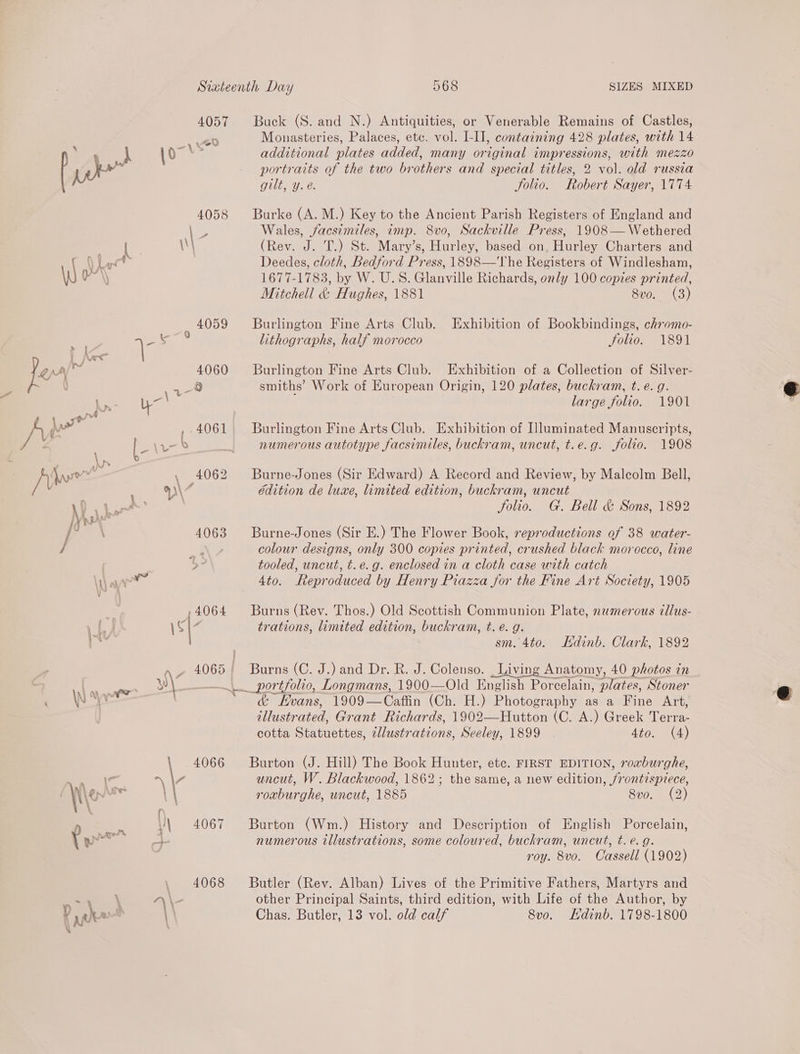 Sixteenth Day 568 SIZES MIXED
4057 Buck (S. and N.) Antiquities, or Venerable Remains of Castles,
Monasteries, Palaces, etc. vol. I-II, containing 428 plates, with 14
additional plates added, many original impressions, with mezzo
portraits of the two brothers and special titles, 2 vol. old russia
gilt, y. e. folio. Robert Sayer, 1774
4058 Burke (A. M.) Key to the Ancient Parish Registers of England and
Wales, facsimiles, imp. 8vo, Sackville Press, 1908—Wethered
(Rev. J. T.) St. Mary's, Hurley, based on Hurley Charters and
Deedes, cloth, Bedford Press, 1898—The Registers of Windlesham,
1677-1783, by W. U. S. Glanville Richards, only 100 copies printed,
Mitchell & Hughes, 1881 8vo. (3)
4059 Burlington Fine Arts Club. Exhibition of Bookbindings, chromo-
lithographs, half morocco folio. 1891
4060 Burlington Fine Arts Club. Exhibition of a Collection of Silver-
smiths' Work of European Origin, 120 plates, buckram, t. e. g.
large folio. 1901
4061 Burlington Fine Arts Club. Exhibition of Illuminated Manuscripts,
numerous autotype facsimiles, buckram, uncut, t. e. g. folio. 1908
4062 Burne-Jones (Sir Edward) A Record and Review, by Malcolm Bell,
édition de luxe, limited edition, buckram, uncut
folio. G. Bell & Sons, 1892
4063 Burne-Jones (Sir E.) The Flower Book, reproductions of 38 water-
colour designs, only 300 copies printed, crushed black morocco, line
tooled, uncut, t. e. g. enclosed in a cloth case with catch
4to. Reproduced by Henry Piazza for the Fine Art Society, 1905
4064 Burns (Rev. Thos.) Old Scottish Communion Plate, numerous illus-
trations, limited edition, buckram, t. e. g.
sm. 4to. Edinb. Clark, 1892
4065 Burns (C. J.) and Dr. R. J. Colenso. Living Anatomy, 40 photos in
portfolio, Longmans, 1900—Old English Porcelain, plates, Stoner
& Evans, 1909—Caffin (Ch. H.) Photography as a Fine Art,
illustrated, Grant Richards, 1902—Hutton (C. A.) Greek Terra-
cotta Statuettes, illustrations, Seeley, 1899 4to. (4)
4066 Burton (J. Hill) The Book Hunter, etc. FIRST EDITION, roxburghe,
uncut, W. Blackwood, 1862; the same, a new edition, frontispiece,
roxburghe, uncut, 1885 8vo. (2)
4067 Burton (Wm.) History and Description of English Porcelain,
numerous illustrations, some coloured, buckram, uncut, t. e. g.
roy. 8vo. Cassell (1902)
4068 Butler (Rev. Alban) Lives of the Primitive Fathers, Martyrs and
other Principal Saints, third edition, with Life of the Author, by
Chas. Butler, 13 vol. old calf 8vo. Edinb. 1798-1800